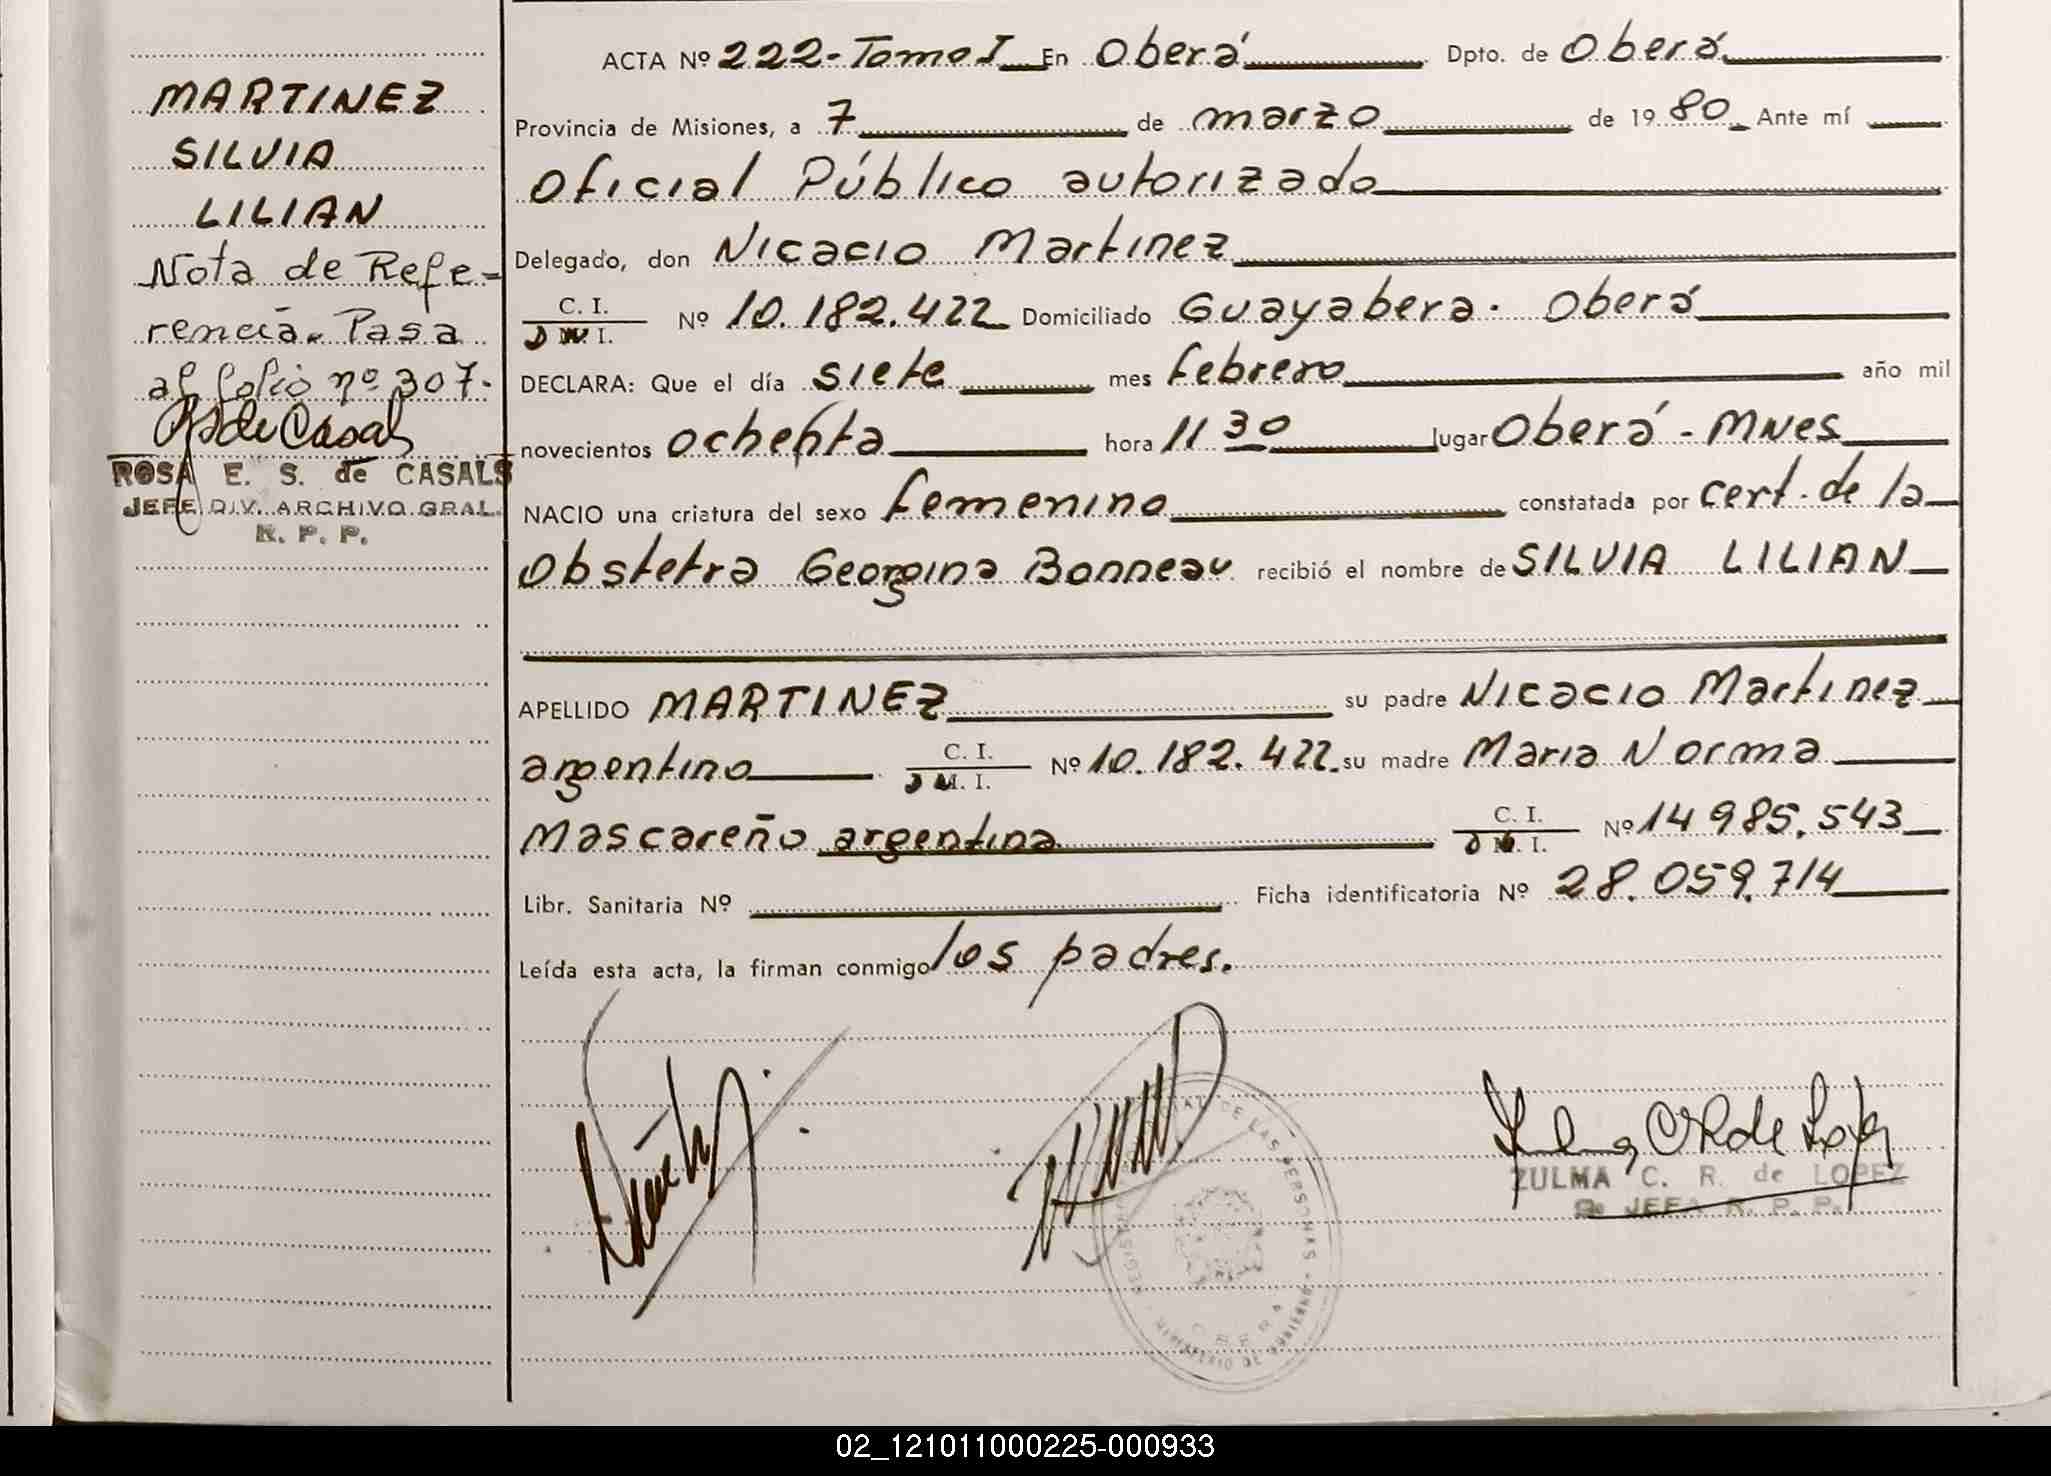 MARTINEZ
SILVIA
LILIAN
Nota de Refe-
rencia. Pasa
al folio nº 307.
RSde Casals
ROSA E. S. de CASALS
JEFE DIV. ARCHIVO GRAL.
R. P. P.
ACTA Nº 222-Tomo I En Oberá Dpto. de Oberá
Provincia de Misiones, a 7 de marzo de 1980 Ante mí
Oficial Público autorizado
Delegado, don Nicacio Martinez
C. I.
D N. I. Nº 10.182.422 Domiciliado Guayabera. Oberá
DECLARA: Que el día siete mes febrero año mil
novecientos ochenta hora 11 30 lugar Oberá - Mnes
NACIO una criatura del sexo femenino constatada por cert. de la
Obstetra Georgina Bonneau recibió el nombre de SILVIA LILIAN
APELLIDO MARTINEZ su padre Nicacio Martinez
argentino C. I. D N. I. Nº 10.182.422 su madre Maria Norma
Mascareño argentina C. I. D N. I. Nº 14 985.543
Libr. Sanitaria Nº Ficha identificatoria Nº 28.059.714
Leída esta acta, la firman conmigo los padres.
Zulma CR de Lopez
ZULMA C. R. de LOPEZ
JEFA R. P. P.
REGISTRO DE LAS PERSONAS
MINISTERIO DE GOBIERNO
OBERA
02_121011000225-000933